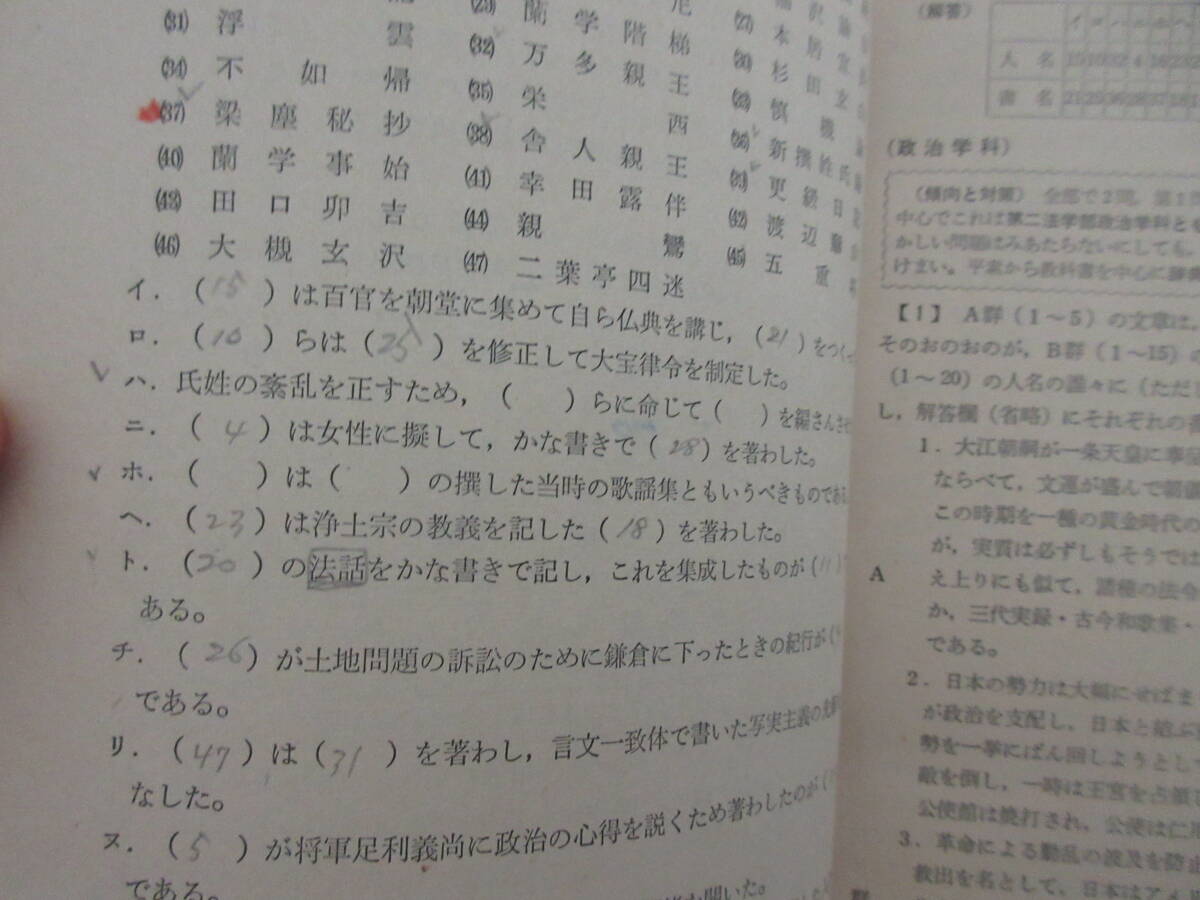 (31) 浮 雲
(34) 不 如 帰
(37) 梁 塵 秘 抄
(40) 蘭 学 事 始
(43) 田 口 卯 吉
(46) 大 槻 玄 沢
蘭 学 階 梯
(32) 万 多 親 王
(35) 栄 西
(38) 舎 人 親 王
(41) 幸 田 露 伴
(44) 親 鸞
(47) 二 葉 亭 四 迷
(42) 渡 辺
(45) 五 重
イ. (15)は百官を朝堂に集めて自ら仏典を講じ,(21)をつく
ロ. (10)らは(25)を修正して大宝律令を制定した。
ハ. 氏姓の紊乱を正すため,( )らに命じて( )を編さんさせ
ニ. (4)は女性に擬して,かな書きで(28)を著わした。
ホ. ( )は( )の撰した当時の歌謡集ともいうべきものである
ヘ. (23)は浄土宗の教義を記した(18)を著わした。
ト. (20)の法話をかな書きで記し,これを集成したものが(11)
ある。
チ. (26)が土地問題の訴訟のために鎌倉に下ったときの紀行が(
である。
リ. (47)は(31)を著わし,言文一致体で書いた写実主義の
なした。
ヌ. (5)が将軍足利義尚に政治の心得を説くため著わしたのが(
である。
開いた。
(解答)
イ ロ ハ ニ ホ ヘ
人 名 15 10 32 4 16 23
書 名 21 25
(政治学科)
(傾向と対策) 全部で2問,第1
中心でこれは第二法学部政治学科とも
かしい問題はみあたらないにしても,
けまい。平素から教科書を中心に
【1】 A群(1~5)の文章は,
そのおのおのが,B群(1~15)の
(1~20)の人名の誰々に(ただ
し,解答欄(省略)にそれぞれの番
A
1. 大江朝綱が一条天皇に奉
ならべて,文運が盛んで
この時期を一種の黄金時代の
が,実質は必ずしもそうでは
え上りにも似て,諸種の法令
か,三代実録・古今和歌集・
である。
2. 日本の勢力は大幅にせばま
が政治を支配し,日本と結ぶ
勢を一挙にばん回しようとして
敵を倒し,一時は王宮を占領
公使館は焼打され,公使は仁
3. 革命による動乱の波及を防止
救出を名として,日本はアメ
群